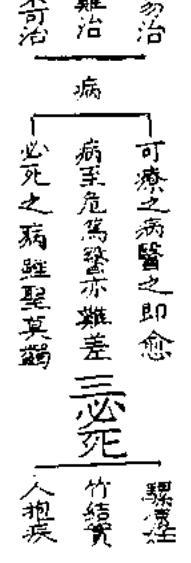 易治
難治
不可治
病
可療之病醫之即愈
病至危篤醫亦難差
必死之病雖聖莫蠲
三必死
騾懷妊
竹結實
人抱疾